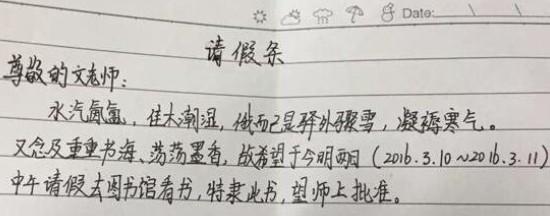 Date:
请假条
尊敬的文老师：
水汽氤氲，佳木潮湿，俄而已是驿外骤雪，凝褥寒气。
又念及重重书海、荡荡墨香，故希望于今明两日（2016.3.10~2016.3.11）
中午请假去图书馆看书，特隶此书，望师上批准。